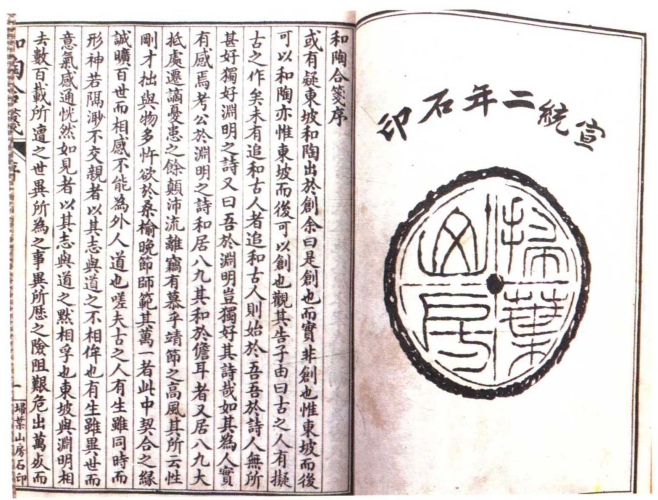 宣統二年石印
掃葉山房
和陶合箋序
或有疑東坡和陶出於創余曰是創也而實非創也惟東坡而後
可以和陶亦惟東坡而後可以創也觀其告子由曰古之人有擬
古之作矣未有追和古人者追和古人則始於吾吾於詩人無所
甚好獨好淵明之詩又曰吾於淵明豈獨好其詩哉如其為人實
有感焉考公於淵明之詩和居八九其和於儋耳者又居八九大
抵處遷謫憂患之餘顛沛流離竊有慕乎靖節之高風其所云性
剛才拙與物多忤欲於桑榆晚節師範其萬一者此中契合之緣
誠曠百世而相感不能為外人道也嗟夫古之人有生雖同時而
形神若隔渺不交親者以其志與道之不相侔也有生雖異世而
意氣感通恍然如見者以其志與道之默相孚也東坡與淵明相
去數百載所遭之世異所為之事異所歷之險阻艱危出萬死而
和陶合箋 序 一 埽葉山房石印